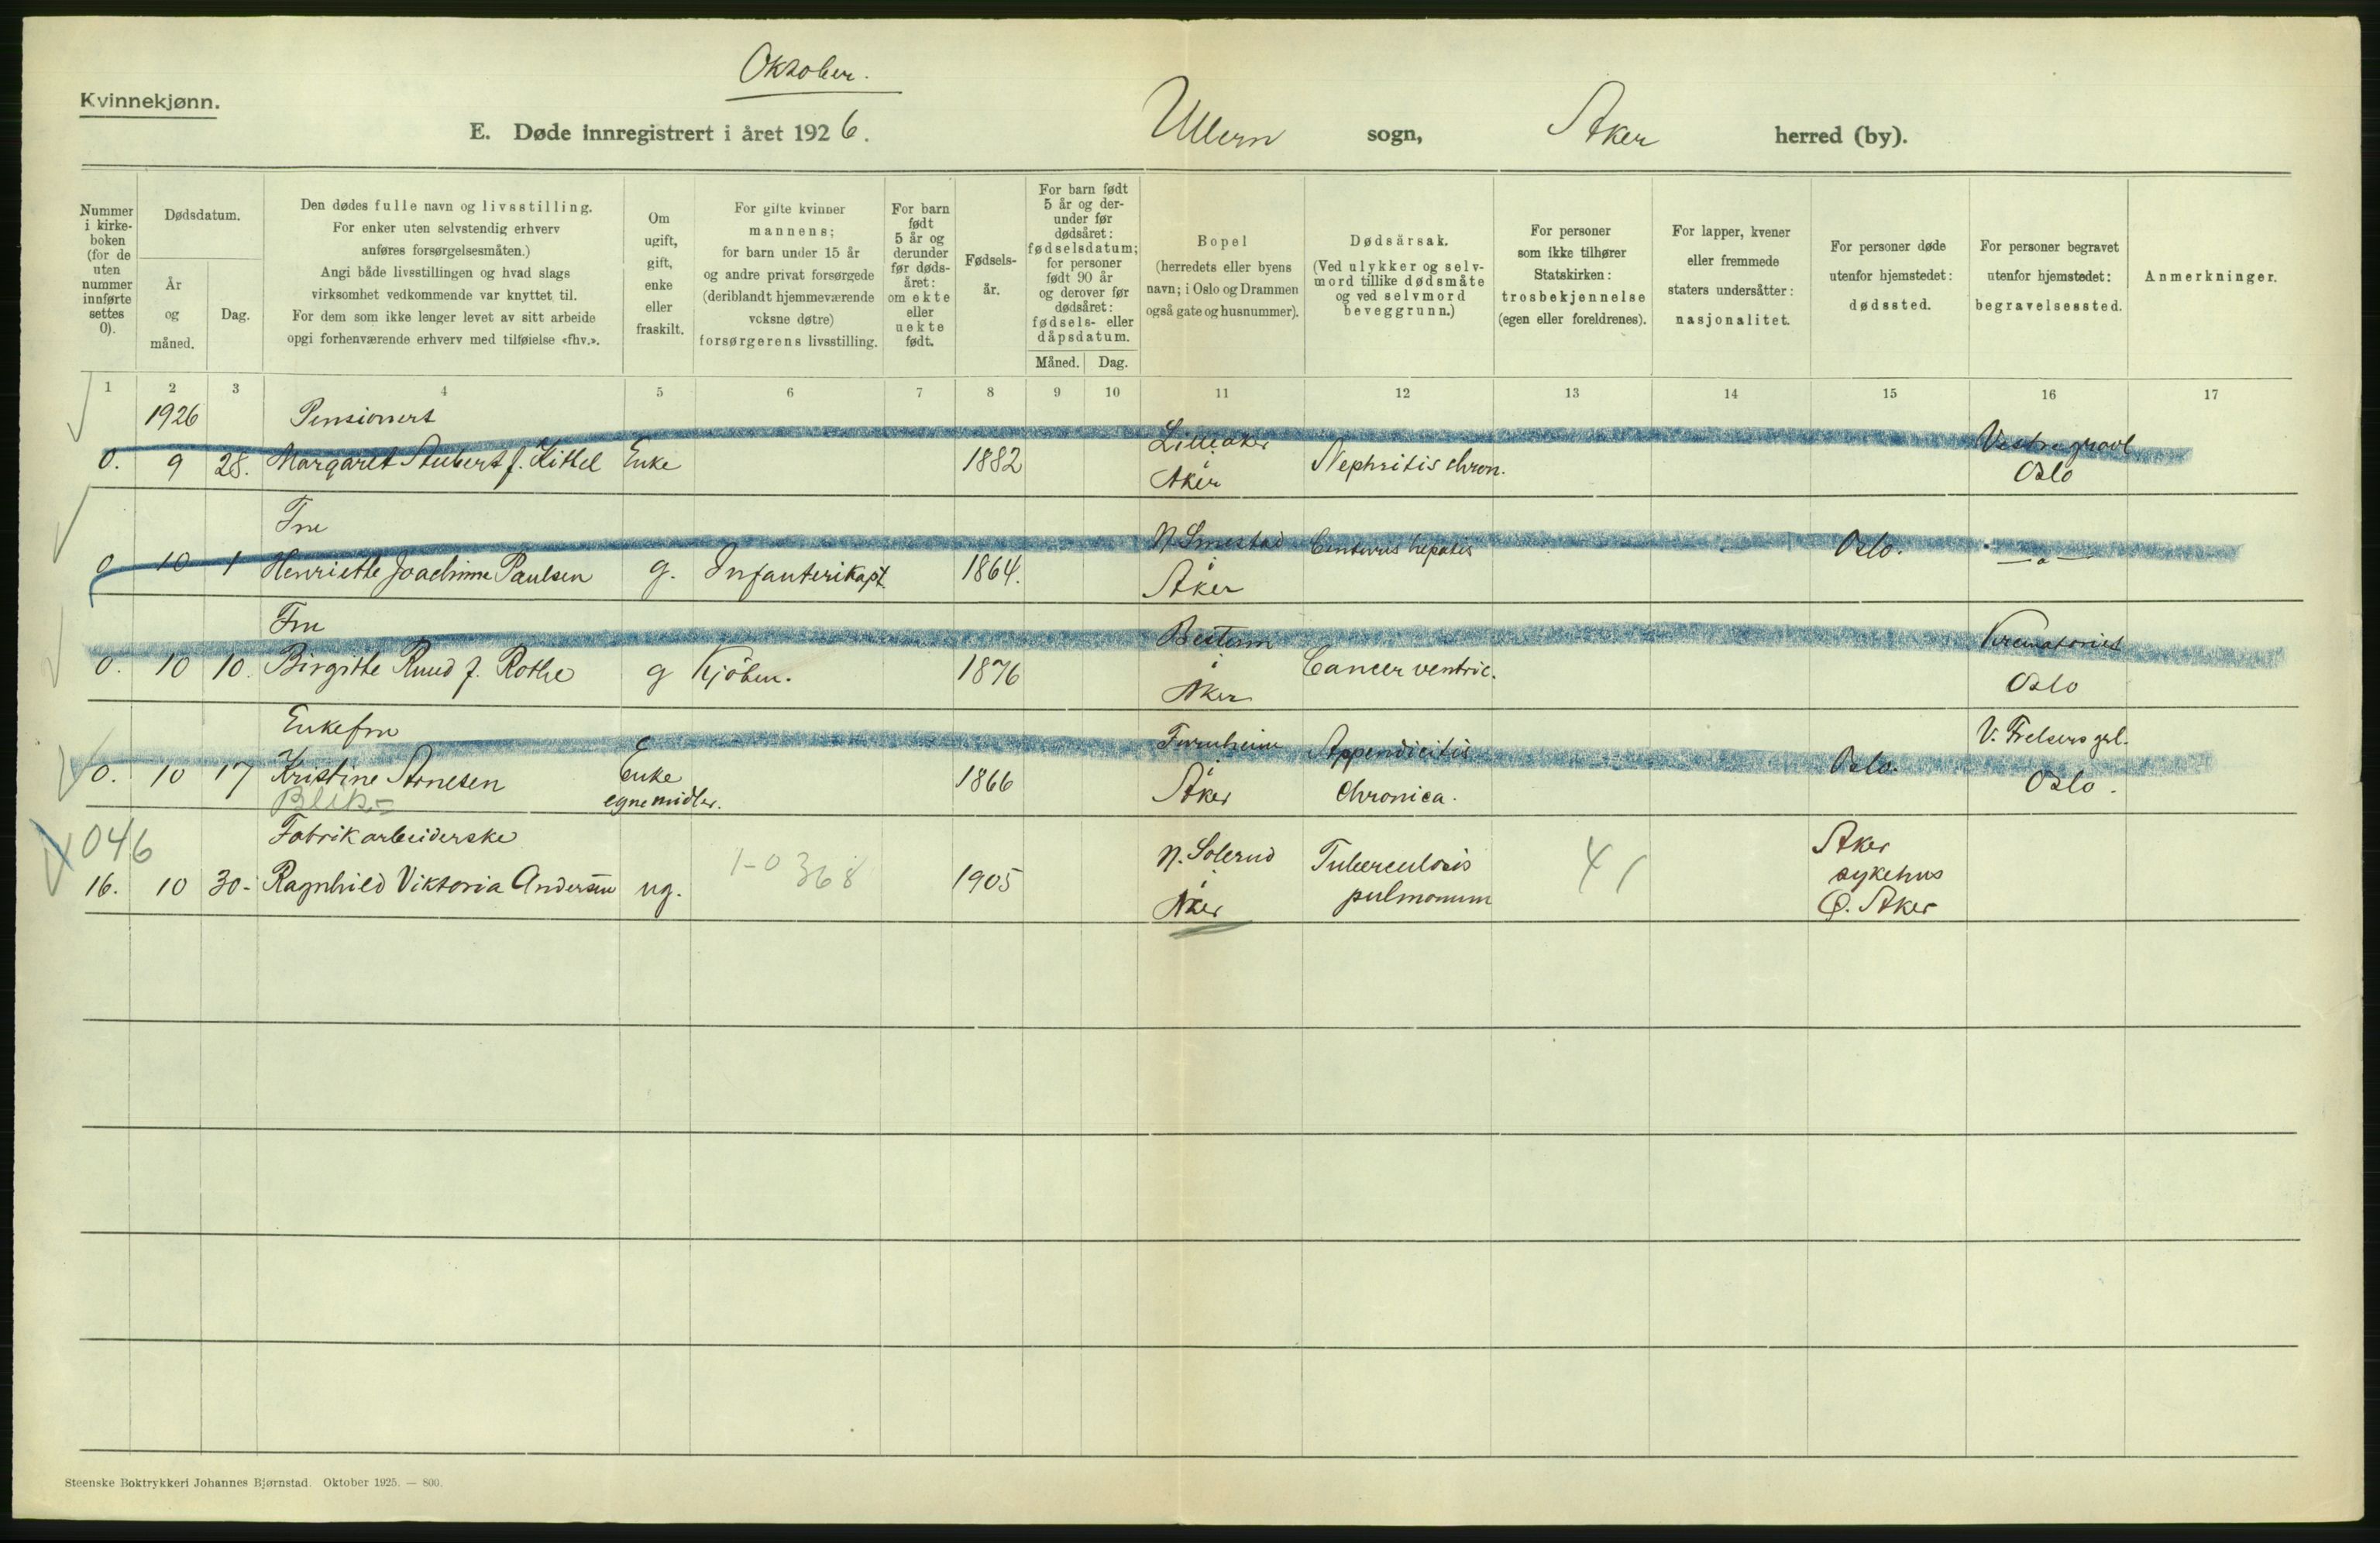 Oktober.
Kvinnekjønn.
E. Døde innregistrert i året 1926.
Ullern sogn, Aker herred (by).
Nummer i kirke-boken (for de uten nummer innførte settes 0).
Dødsdatum.
År og måned.
Dag.
Den dødes fulle navn og livsstilling.
For enker uten selvstendig erhverv
anføres forsørgelsesmåten.)
Angi både livsstillingen og hvad slags
virksomhet vedkommende var knyttet til.
For dem som ikke lenger levet av sitt arbeide
opgi forhenværende erhverv med tilføielse «fhv.».
Om ugift, gift, enke eller fraskilt.
For gifte kvinner
mannens;
for barn under 15 år
og andre privat forsørgede
(deriblandt hjemmeværende
voksne døtre)
forsørgerens livsstilling.
For barn født 5 år og derunder før døds-året: om ekte eller uekte født.
Fødsels-år.
For barn født 5 år og der-under før dødsåret: fødselsdatum; for personer født 90 år og derover før dødsåret: fødsels- eller dåpsdatum.
Måned. Dag.
Bopel
(herredets eller byens
navn; i Oslo og Drammen
også gate og husnummer).
Dødsårsak.
(Ved ulykker og selv-
mord tillike dødsmåte
og ved selvmord
beveggrunn.)
For personer
som ikke tilhører
Statskirken:
trosbekjennelse
(egen eller foreldrenes).
For lapper, kvener
eller fremmede
staters undersåtter:
nasjonalitet.
For personer døde
utenfor hjemstedet:
dødssted.
For personer begravet
utenfor hjemstedet:
begravelsessted.
Anmerkninger.
1 2 3 4 5 6 7 8 9 10 11 12 13 14 15 16 17
1926 Pensionert Lilleaker Vestre gravl
0. 9 28. Margaret Stubert f. Kittel Enke 1882 i Aker Nephritis chron. Oslo
Fru N Smestad
0 10 1 Henriette Joachime Paulsen g. Infanterikapt 1864. i Aker hepatis Oslo. —"—
Fru Bestum Krematoriet
0. 10 10. Birgitte Ruud f. Rothe g Kjöbm. 1876 i Aker Cancer ventric. Oslo
Enkefru Furuheim Appendicitis V. Frelsers grl.
0. 10 17 Kristine Arnesen Enke 1866 i Aker Chronica. Oslo. Oslo.
Blik.- egne midler.
046 Fabrikarbeiderske N. Solerud Tuberculosis Aker
16. 10 30- Ragnhild Viktoria Andersen ug. 1-0 368 1905 i Aker pulmonum 41 sykehus
Ø. Aker
Steenske Boktrykkeri Johannes Bjørnstad. Oktober 1925. — 800.